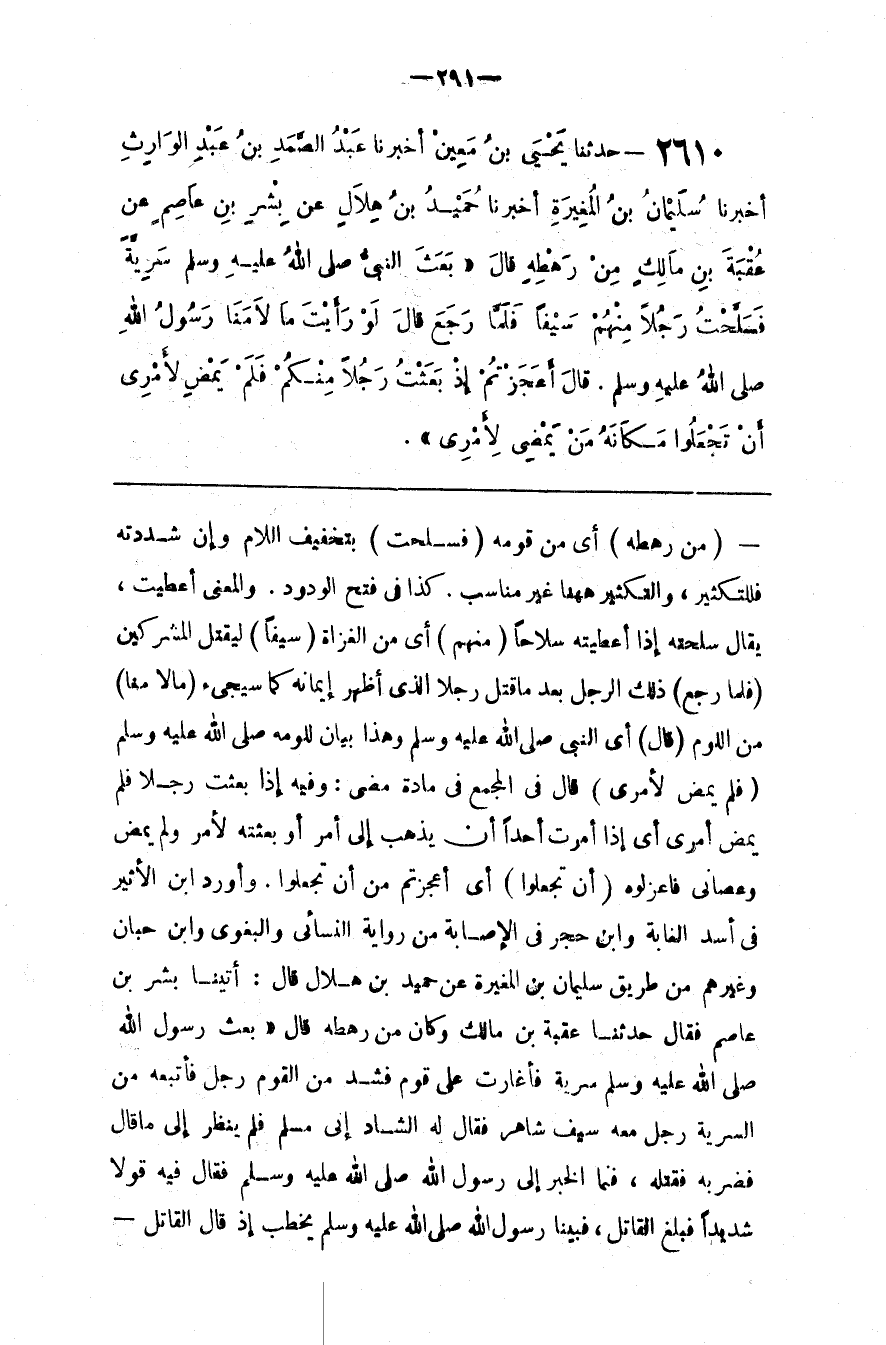 —٢٩١—
٢٦١٠ — حدثنا يَحْيَى بنُ مَعِينْ أخبرنا عَبْدُ الصَّمَدِ بنُ عَبْدِ الوَارِثِ
أخبرنا سُلَيْمَانُ بنُ المُغِيرَةِ أخبرنا حُمَيْدُ بنُ هِلَالٍ عن بِشْرِ بنِ عَاصِمٍ عن
عُقْبَةَ بنِ مَالِكٍ مِنْ رَهْطِهِ قالَ « بَعَثَ النبيُّ صلى اللهُ عليهِ وسلم سَرِيَّةً
فَسَلَّحْتُ رَجُلاً مِنْهُمْ سَيْفاً فَلَمَّا رَجَعَ قالَ لَوْ رَأَيْتَ مَا لَامَنَا رَسُولُ اللهِ
صلى اللهُ عليهِ وسلم . قالَ أَعَجَزْتُمْ إِذْ بَعَثْتُ رَجُلاً مِنْكُمْ فَلَمْ يَمْضِ لأَمْرِى
أَنْ تَجْعَلُوا مَكَانَهُ مَنْ يَمْضِى لِأَمْرِى » .
— ( من رهطه ) أى من قومه ( فسلحت ) بتخفيف اللام وإن شددته
فللتكثير ، والتكثير ههنا غير مناسب . كذا فى فتح الودود . والمعنى أعطيت ،
يقال سلحته إذا أعطيته سلاحاً ( منهم ) أى من الغزاة ( سيفاً ) ليقتل المشركين
(فلما رجع) ذلك الرجل بعد ماقتل رجلا الذى أظهر إيمانه كما سيجىء (مالا منا)
من اللوم (قال) أى النبى صلى الله عليه وسلم وهذا بيان للومه صلى الله عليه وسلم
( فلم يمض لأمرى ) قال فى المجمع فى مادة مضى : وفيه إذا بعثت رجلا فلم
يمض أمرى أى إذا أمرت أحداً أن يذهب إلى أمر أو بعثته لأمر ولم يمض
وعصانى فاعزلوه ( أن تجعلوا ) أى أعجزتم من أن تجعلوا . وأورد ابن الأثير
فى أسد الغابة وابن حجر فى الإصابة من رواية النسائى والبغوى وابن حبان
وغيرهم من طريق سليمان بن المغيرة عن حميد بن هلال قال : أتينا بشر بن
عاصم فقال حدثنا عقبة بن مالك وكان من رهطه قال « بعث رسول الله
صلى الله عليه وسلم سرية فأغارت على قوم فشد من القوم رجل فأتبعه من
السرية رجل معه سيف شاهر فقال له الشاد إنى مسلم فلم ينظر إلى ماقال
فضربه فقتله ، فنما الخبر إلى رسول الله صلى الله عليه وسلم فقال فيه قولا
شديداً فبلغ القاتل ، فبينا رسول الله صلى الله عليه وسلم يخطب إذ قال القاتل —